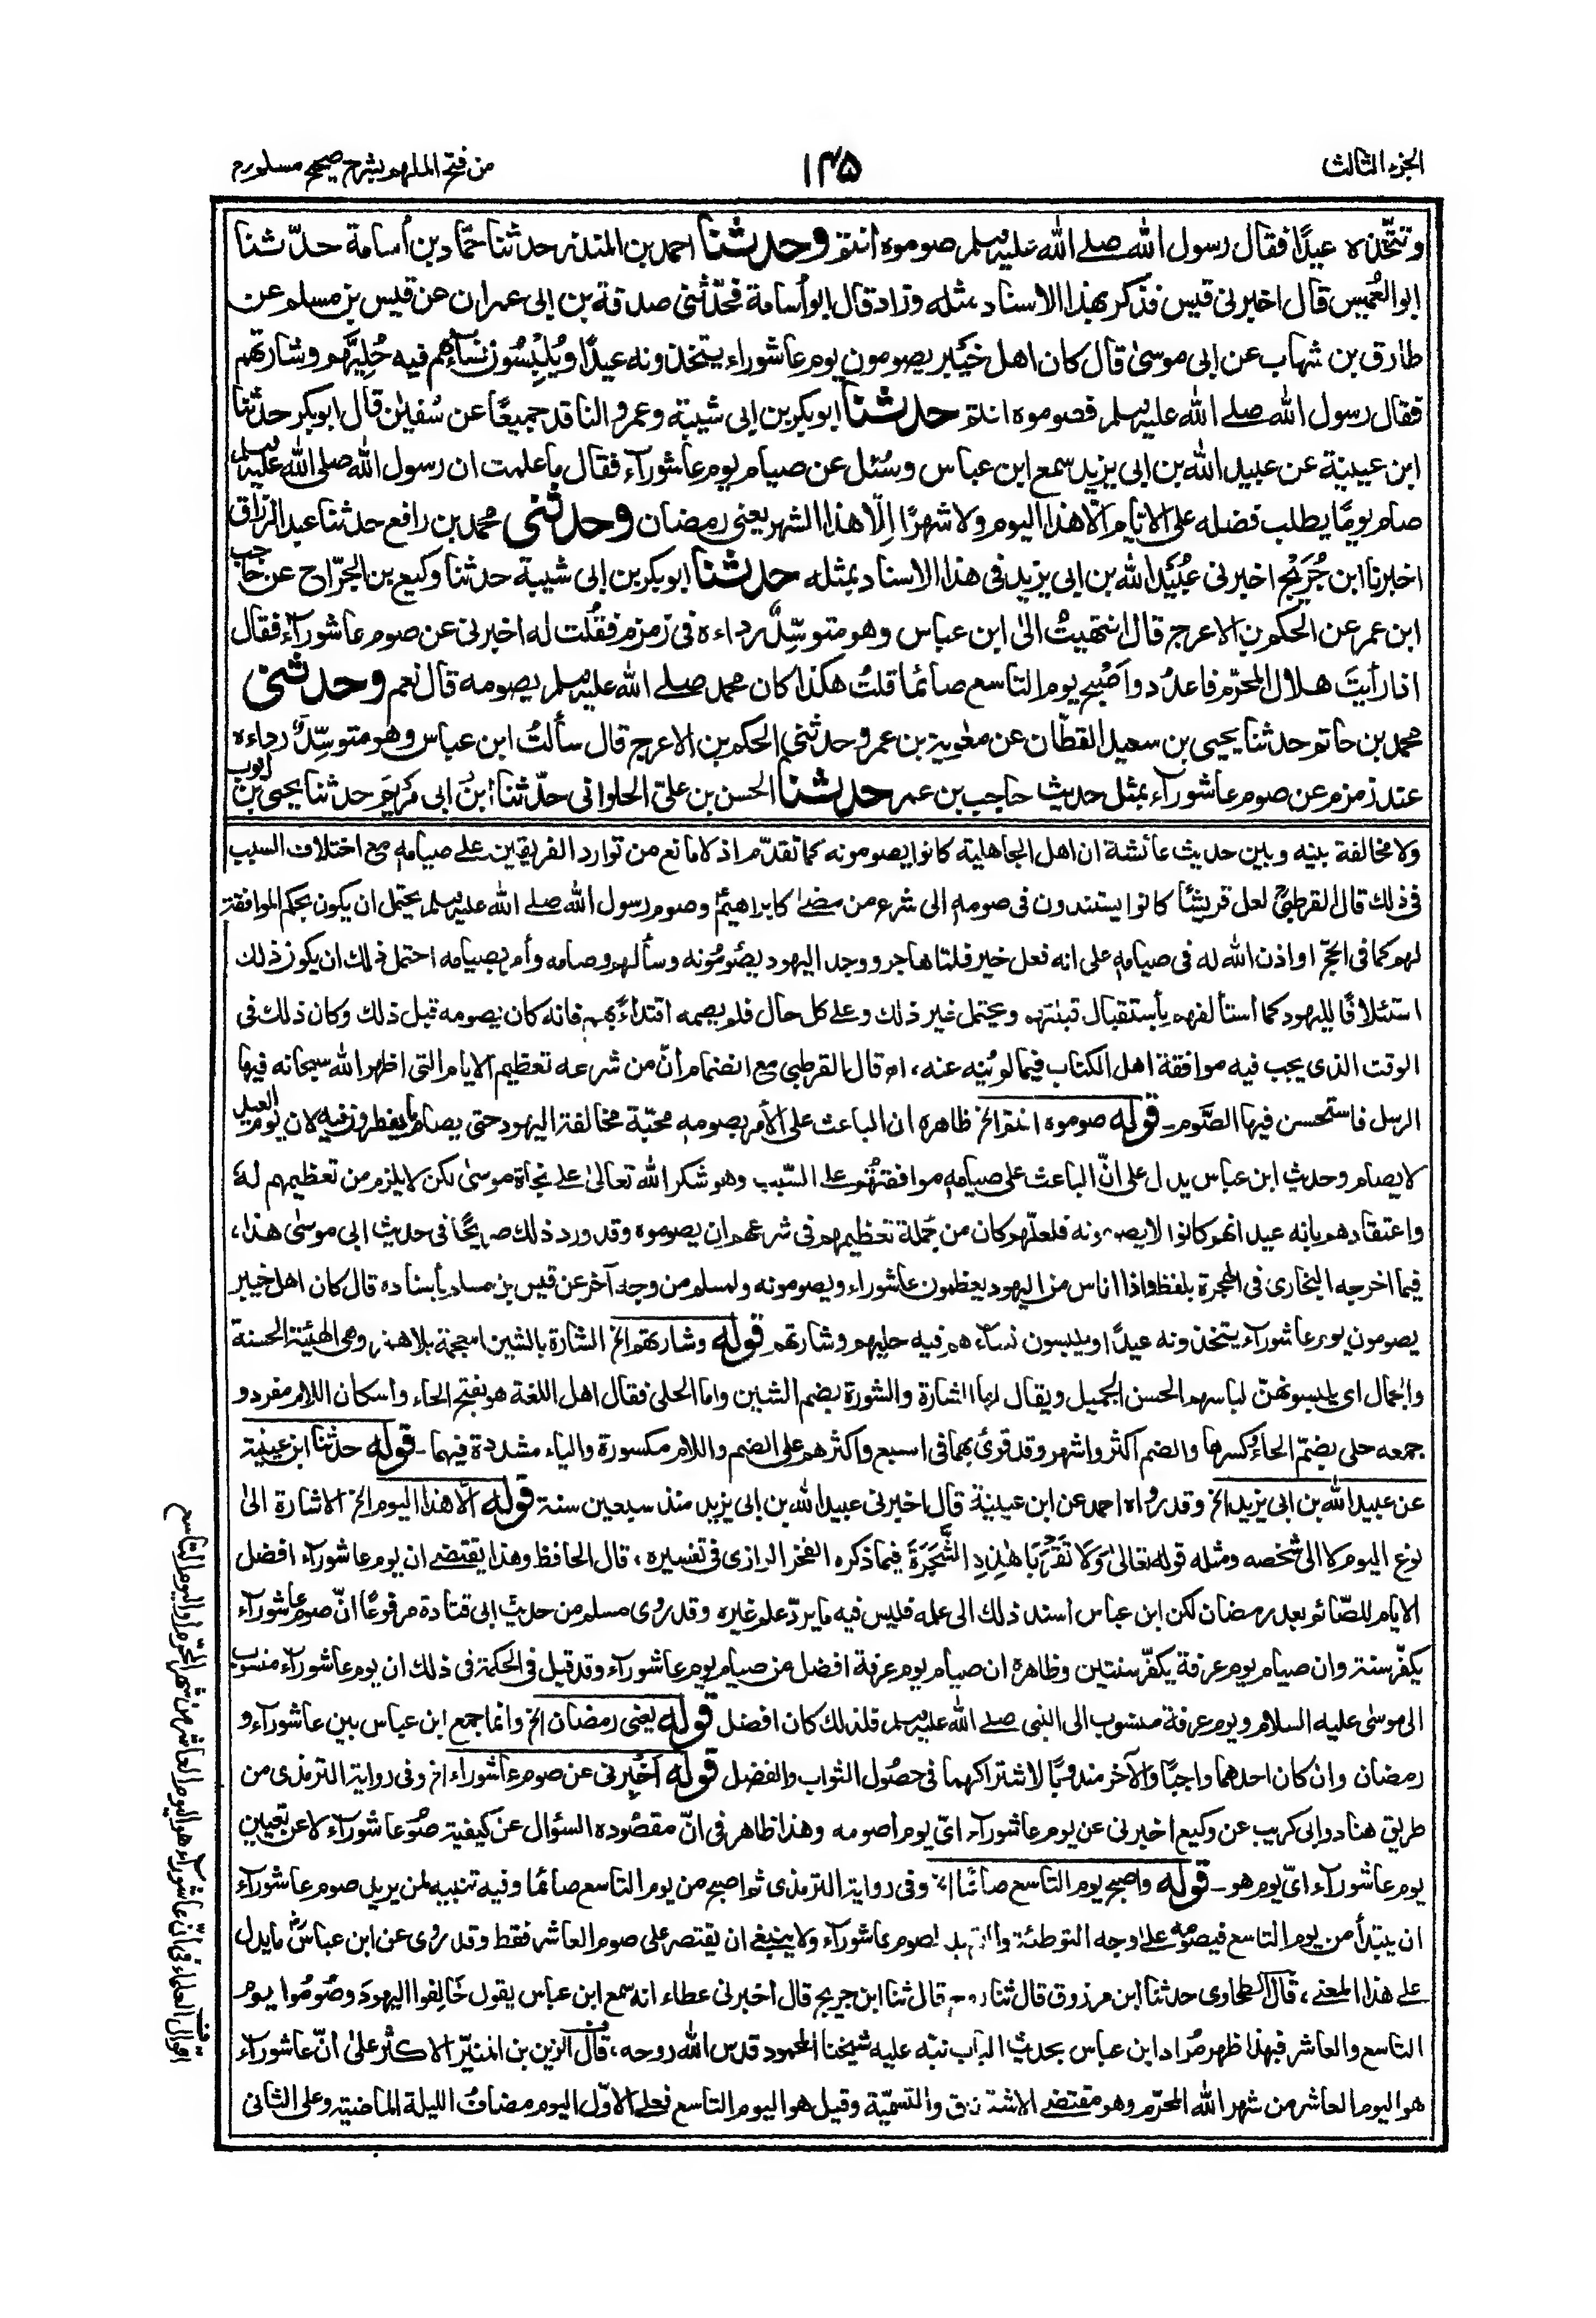 الجزء الثالث
١٤٥
من فتح الملهم بشرح صحيح مسلم
وتتّخذه عيدًا فقال رسول الله صلے الله عليه وسلم صوموه انتم وحدثنا احمد بن المنذر حدثنا حمّاد بن أسامة حدّثنا
ابوالعُميس قال اخبرنی قيس فذكر بهذا الاسناد مثله وزاد قال ابو أسامة فحدّثنی صدقة بن ابی عمران عن قيس بن مسلم عن
طارق بن شهاب عن ابی موسىٰ قال كان اهل خَيْبر يصومون يوم عاشوراء يتخذونه عيدًا ويُلْبِسُون نساءهم فيه حُلِيَّهم وشارتهم
فقال رسول الله صلے الله عليه وسلم فصوموه انتم حدثنا ابوبكر بن ابی شيبة وعمرو الناقد جميعًا عن سُفيٰن قال ابوبكر حدثنا
ابن عيينة عن عبيد الله بن ابی يزيد سمع ابن عباس وسُئل عن صيام يوم عاشورآء فقال ما علمت ان رسول الله صلی الله عليه وسلم
صام يومًا يطلب فضله علی الايّام الّا هذا اليوم ولا شهرًا اِلّا هذا الشهر يعنی رمضان وحدثنی محمد بن رافع حدثنا عبد الرزاق
اخبرنا ابن جُرَيْج اخبرنی عُبَيْد الله بن ابی يزيد فی هذا الاسناد بمثله حدثنا ابوبكر بن ابی شيبة حدثنا وكيع بن الجرّاح عن حاجب
ابن عمر عن الحكم بن الاعرج قال انتهيتُ الیٰ ابن عباس وهو متوسِّدٌ رداءه فی زمزم فقُلت له اخبرنی عن صوم عاشورآء فقال
اذا رأيتَ هلال المحرّم فاعدُد واَصْبِح يوم التاسع صائمًا قلتُ هكذا كان محمد صلے الله عليه وسلم يصومه قال نعم وحدثنی
محمد بن حاتم حدثنا يحيى بن سعيد القطّان عن معٰوية بن عمرو حدثنی الحكم بن الاعرج قال سألتُ ابن عباس وهو متوسِّدٌ رداءه
عند زمزم عن صوم عاشورآء بمثل حديث حاجب بن عمر حدثنا الحسن بن علیّ الحلوانی حدّثنا ابنُ ابی مَرْيَم حدثنا يحيى بن ايوب
ولا مخالفة بينه وبين حديث عائشة ان اهل الجاهلية كانوا يصومونه كما تقدّم اذ لا مانع من توارد الفريقين علے صيامه مع اختلاف السبب
فی ذلك قال القرطبیّ لعل قريشًا كانوا يستندون فی صومه الی شرع من مضیٰ كابراهيمؑ وصوم رسول الله صلے الله عليه وسلم يحتمل ان يكون بحكم الموافقة
لهم كما فی الحجّ او اذن الله له فی صيامه علی انه فعل خير فلمّا هاجر ووجد اليهود يصُومُونه وسألهم وصامه وأمر بصيامه احتمل ذلك ان يكون ذلك
استئلافًا لليهود كما استألفهم بأستقبال قبلتهم ويحتمل غير ذلك وعلے كل حال فلم يصمه اقتداءً بهم فانه كان يصومه قبل ذلك وكان ذلك فی
الوقت الذی يجب فيه موافقة اهل الكتاب فيما لم يُنه عنه، اھ قال القرطبی مع انضمام انّ من شرعه تعظيم الايام التی اظهر الله سبحانه فيها
الرسل فاستحسن فيها الصَّوم۔ قوله صوموه انتم الخ ظاهره ان الباعث علی الأمر بصومه محبّة مخالفة اليهود حتی يصام ما يفطرون فيه لان يوم العيد
لا يصام وحديث ابن عباس يدل علی انّ الباعث علی صيامه موافقتُهُم علے السَّبب وهو شكر الله تعالیٰ علے نجاة موسىٰ لكن لا يلزم من تعظيمهم لهٗ
واعتقادهم بانه عيد انهم كانوا لا يصومونه فلعلّهم كان من جُملة تعظيمهم فی شرعهم ان يصوموه وقد ورد ذلك صريحًا فی حديث ابی موسىٰ هذا،
فيما اخرجه البخاری فی الهجرة بلفظ واذا اناس من اليهود يعظمون عاشوراء ويصومونه ولمسلم من وجه آخر عن قيس بن مسلم بأسناده قال كان اهل خيبر
يصمون يوم عاشورآء يتخذونه عيدًا ويلبسون نساءهم فيه حليهم وشارتهم قوله وشارتهم الخ الشارة بالشين المعجمة بلا همز وهی الهيئة الحسنة
والجمال ای يلبسونهنّ لباسهم الحسن الجميل ويقال لها الشارة والشورة بضم الشين واما الحلی فقال اهل اللغة هو بفتح الحاء واسكان اللام مفرد و
جمعه حلی بضمّ الحاء وكسرها والضم اكثر واشهر وقد قرئ بهما فی السبع واكثرهم علی الضم واللام مكسورة والياء مشددة فيهما۔ قوله حدثنا ابن عيينة
عن عبيد الله بن ابی يزيد الخ وقد رواه احمد عن ابن عيينة قال اخبرنی عبيد الله بن ابی يزيد منذ سبعين سنة قوله الّا هذا اليوم الخ الاشارة الیٰ
نوع اليوم كا الی شخصه ومثله قوله تعالیٰ وَلَا تَقْرَبَا هٰذِهِ الشَّجَرَةَ فيما ذكره الفخر الرازی فی تفسيره، قال الحافظ وهذا يقتضے ان يوم عاشورآء افضل
الايام للصّائم بعد رمضان لكن ابن عباس اسند ذلك الی علمه فليس فيه ما يردّ علم غيره وقد روی مسلم من حديث ابی قتادة مرفوعًا انّ صوم عاشورآء
يكفّر سنة وان صيام يوم عرفة يكفّر سنتين وظاهره ان صيام يوم عرفة افضل من صيام يوم عاشورآء وقد قيل فی الحكمة فی ذلك ان يوم عاشورآء منسوب
الی موسىٰ عليه السلام ويوم عرفة منسوب الی النبی صلے الله عليه وسلم فلذلك كان افضل قوله يعنی رمضان الخ وانما جمع ابن عباس بين عاشورآء و
رمضان وان كان احدهما واجبًا والآخر مندوبًا لاشتراكهما فی حصُول الثواب والفضل قوله اَخْبِرنی عن صوم عاشوراء الخ وفی رواية الترمذی من
طريق هناد وابی كريب عن وكيع اخبرنی عن يوم عاشورآء ایّ يوم اصومه وهذا ظاهر فی انّ مقصُوده السؤال عن كيفية صوم عاشورآء لا عن تعيين
يوم عاشورآء ایّ يوم هو۔ قوله واصبح يوم التاسع صائمًا الخ وفی رواية الترمذی ثم اصبح من يوم التاسع صائمًا وفيه تنبيه لمن يريد صوم عاشورآء
ان يبتدأ من يوم التاسع فيصومه علے وجه التوطئة والتمهيد لصوم عاشورآء ولا ينبغے ان يقتصر علی صوم العاشر فقط وقد روی عن ابن عباسؓ ما يدل
علے هذا المعنے، قال الطحاوی حدثنا ابن مرزوق قال ثنا روح قال ثنا ابن جريج قال اخبرنی عطاء انه سمع ابن عباس يقول خَالِفوا اليهودَ وصُومُوا يوم
التاسع والعاشر فبهذا ظهر مُراد ابن عباس بحديث الباب نبّه عليه شيخنا المحمود قدس الله روحه، قال الزين بن المنيّر الاكثر علیٰ انّ عاشورآء
هو اليوم العاشر من شهر الله المحرّم وهو مقتضے الاشتقاق والتسميّة وقيل هو اليوم التاسع فعلے الاوّل اليوم مضافٌ الليلة الماضية وعلی الثانی
اقوال العلماء فی انّ عاشورآء هو اليوم العاشر من شهر المحرّم او اليوم التاسع